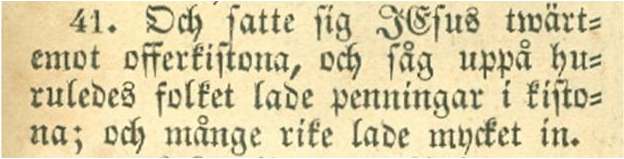 41. Och satte sig JEsus twärt=
emot offerkistona, och såg uppå hu=
ruledes folket lade penningar i kisto=
na; och månge rike lade mycket in.